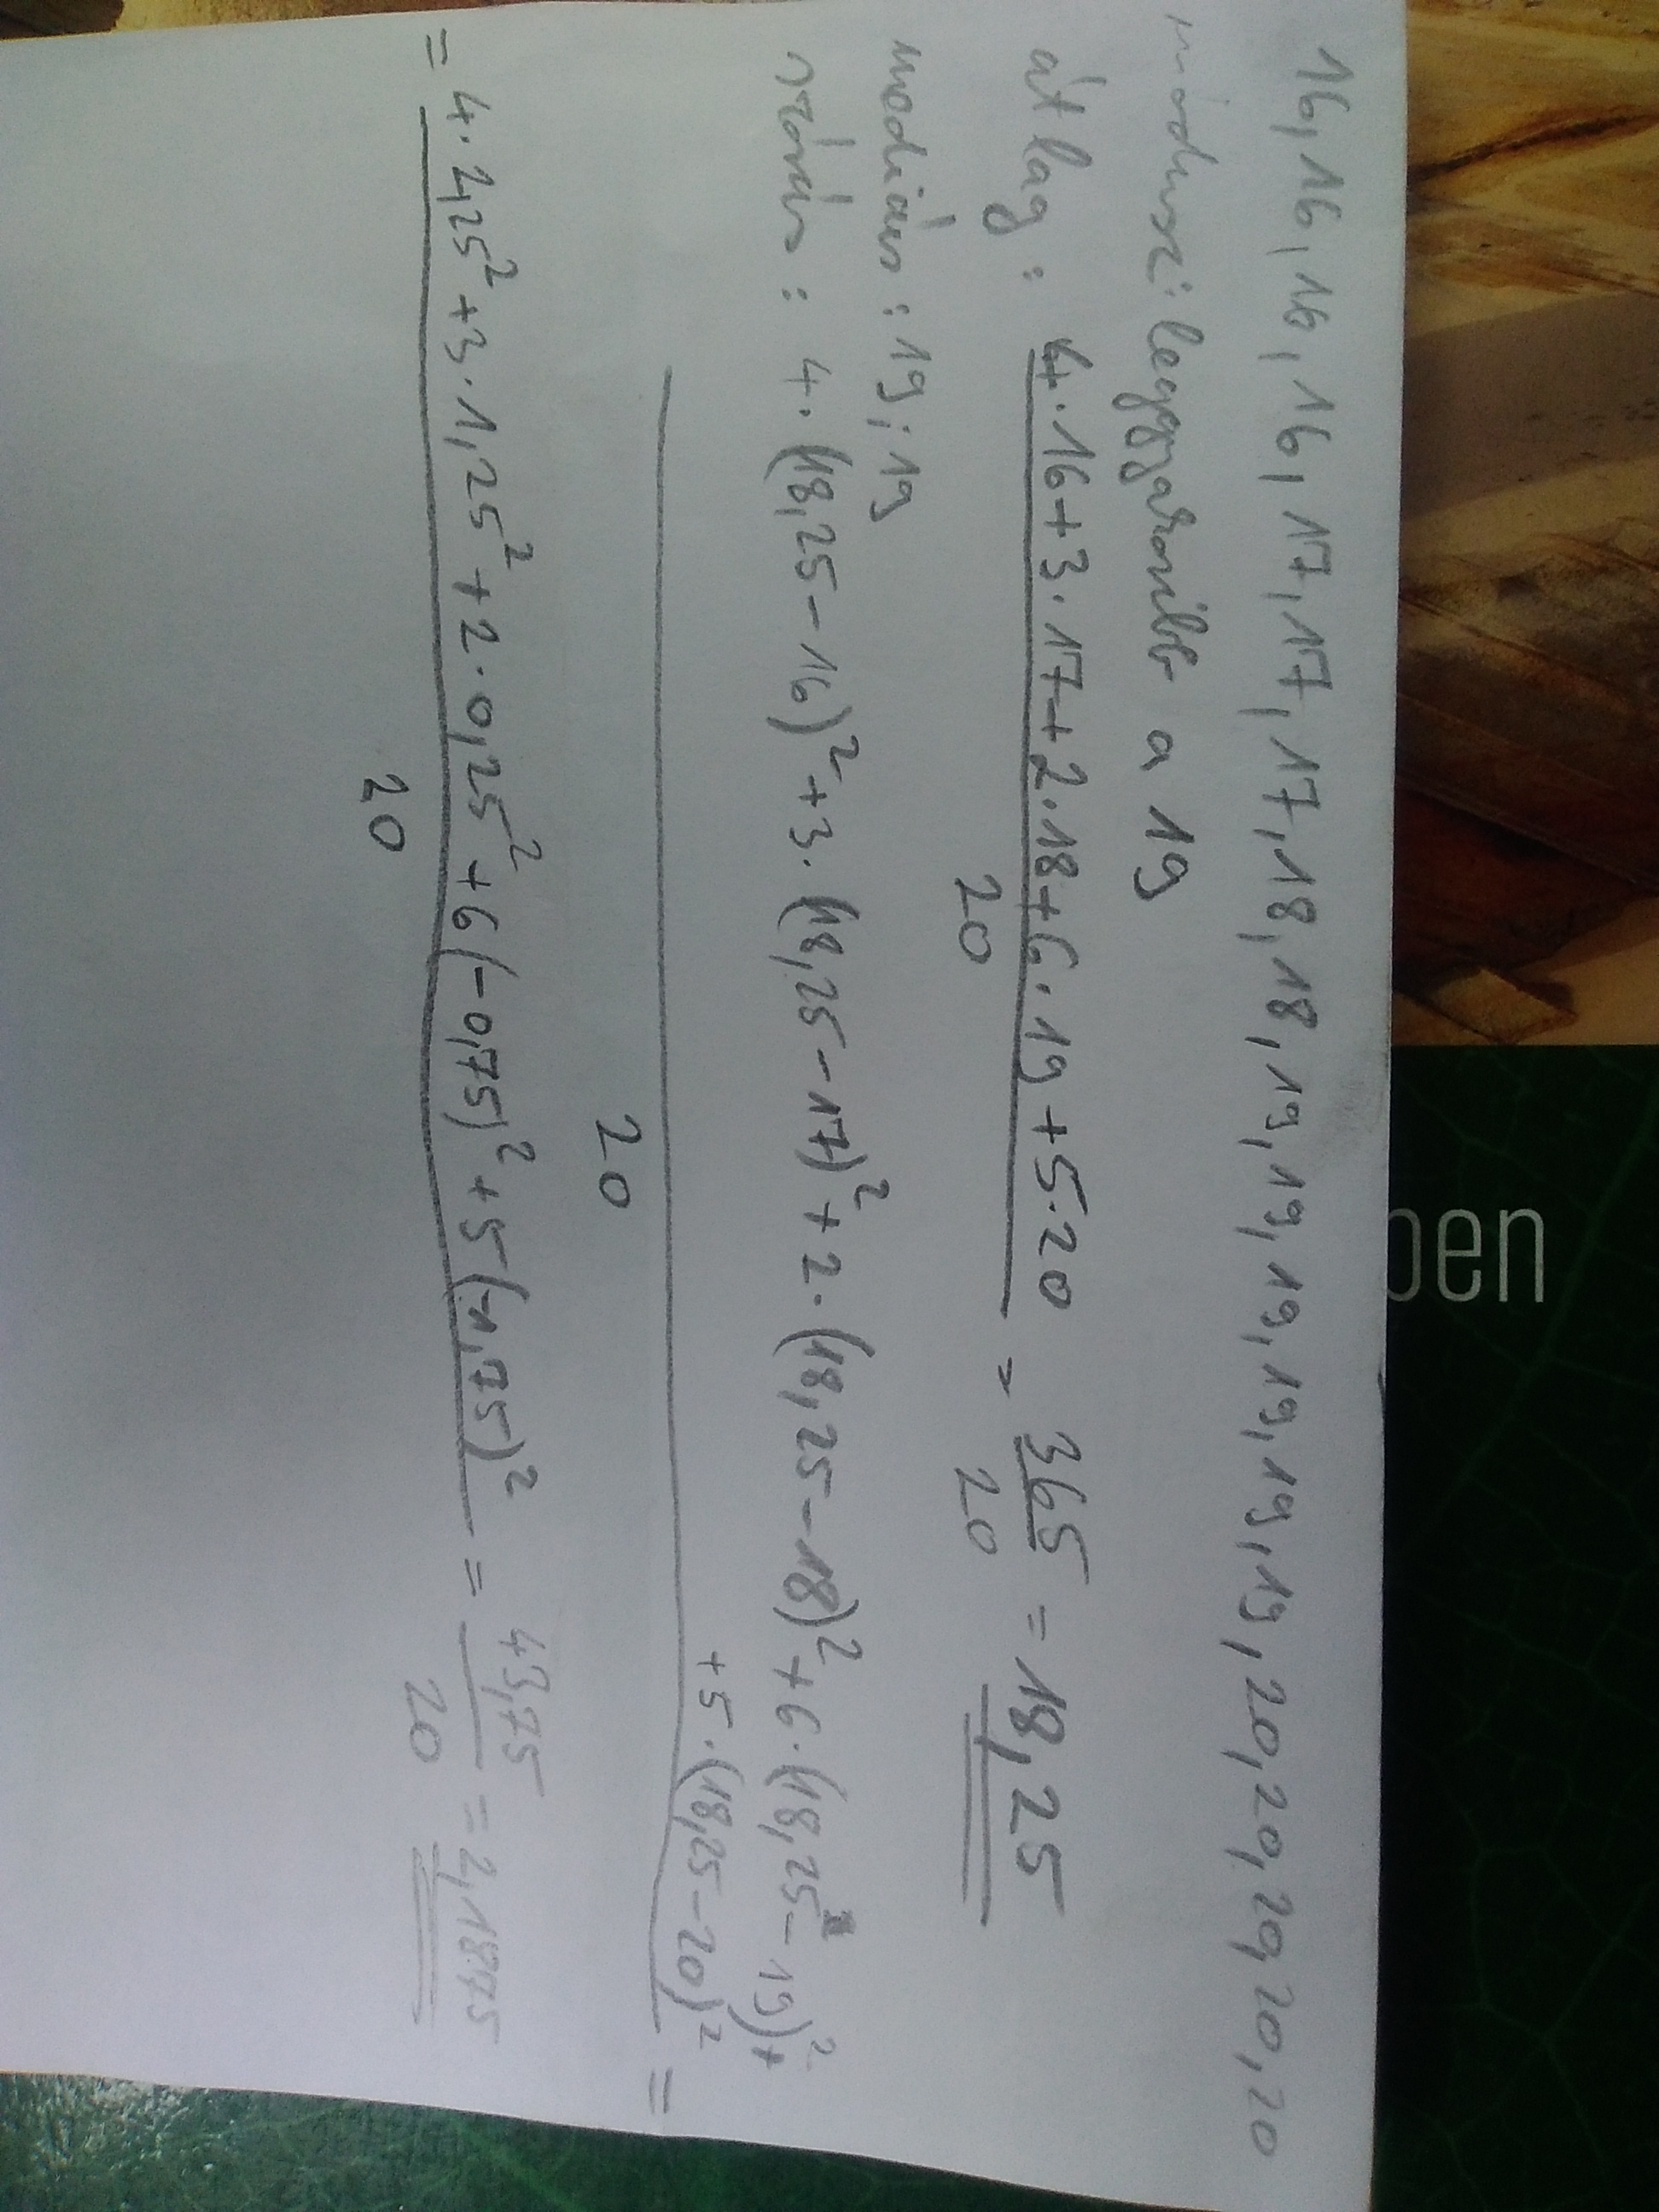 16, 16, 16, 16, 17, 17, 17, 18, 18, 19, 19, 19, 19, 19, 19, 20, 20, 20, 20, 20
módusz: leggyakoribb a 19
átlag: 4·16+3·17+2·18+6·19+5·20 = 365 = 18,25
20 20
medián: 19; 19
szórás: 4·(18,25-16)²+3·(18,25-17)²+2·(18,25-18)²+6·(18,25-19)²+
+5·(18,25-20)² =
20
= 4·2,25²+3·1,25²+2·0,25²+6(-0,75)²+5(-1,75)² = 43,75 = 2,1875
20 20
ben